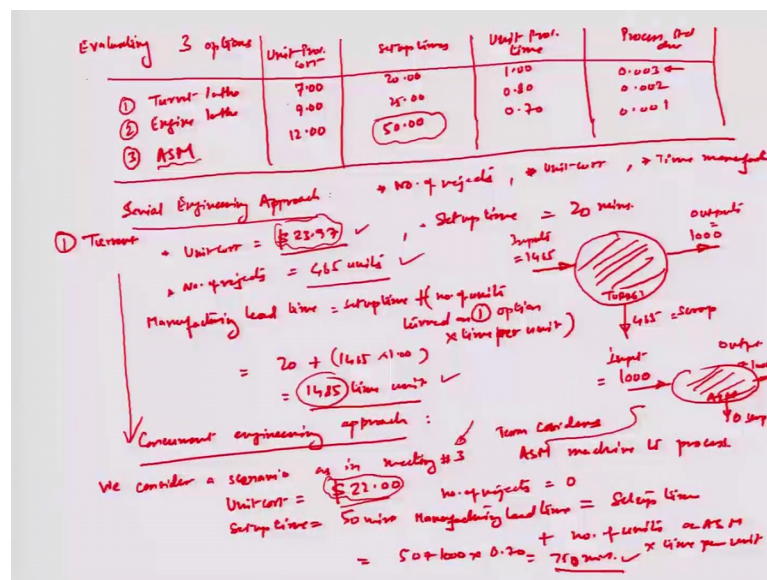 Evaluating 3 options | Unit Proc. cost | Set up times | Unit Proc. time | Process Std dev
① Turret lathe 7.00 20.00 1.00 0.003 ←
② Engine lathe 9.00 25.00 0.80 0.002
③ ASM 12.00 50.00 0.70 0.001
Serial Engineering Approach: * No. of rejects, * Unit-cost, * Time manufact
① Turret * Unit cost = $23.97 ✓, * Set up time = 20 mins.
* No. of rejects = 465 units ✓
Inputs = 1465
outputs = 1000
TURRET
465 = scrap
Manufacturing lead time = set up time + (no. of units
turned on ① option
x time per unit)
= 20 + (1465 x 1.00)
= 1485 time unit ✓
Input = 1000
output 100
ASM
0 scrap
Concurrent engineering approach:
Team considers
ASM machine to process
We consider a scenario as in meeting #3
Unit cost = $22.00 no. of rejects = 0
Set up time = 50 mins Manufacturing lead time = Set up time
+ no. of units on ASM
x time per unit
= 50 + 1000 x 0.70 = 750 mins. ✓